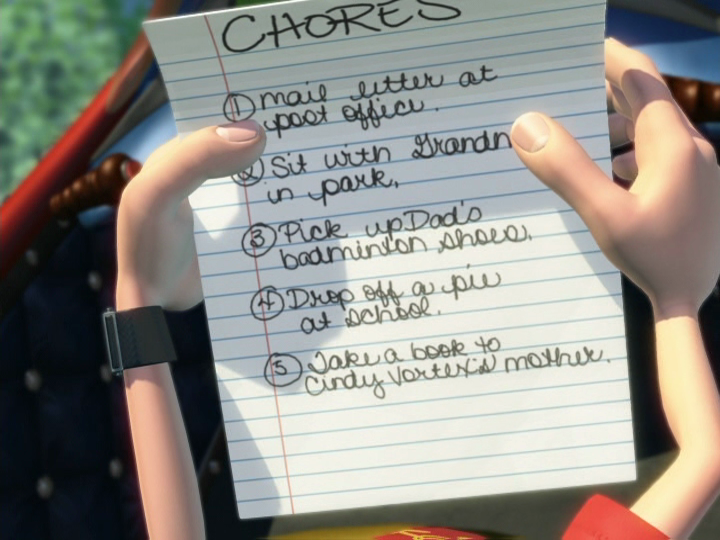 CHORES
1 Mail letter at
post office.
2 Sit with Grandm
in park.
3 Pick up Dad's
badminton shoes.
4 Drop off a pie
at school.
5 Take a book to
Cindy Vortex's mother.